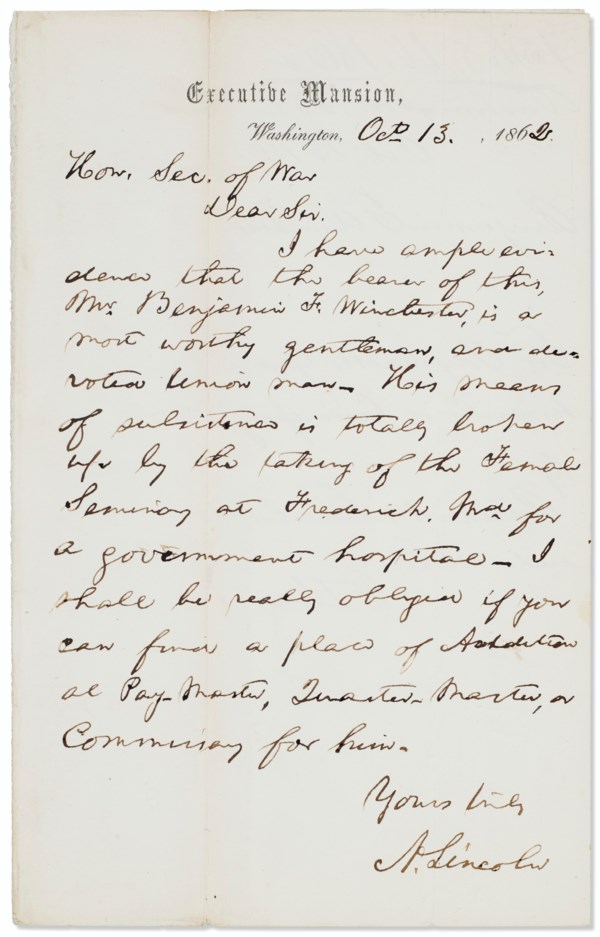 Executive Mansion,
Washington, Oct 13. , 1862.
Hon. Sec. of War
Dear Sir.
I have ample evi-
dence that the bearer of this,
Mr. Benjamin F. Winchester, is a
most worthy gentleman, and de-
voted Union man— His means
of subsistence is totally broken
up by the taking of the Female
Seminary at Frederick, Md for
a government hospital— I
shall be really obliged if you
can find a place of Addition
al Pay-Master, Quarter-Master, or
Commissary for him—
Yours truly
A. Lincoln